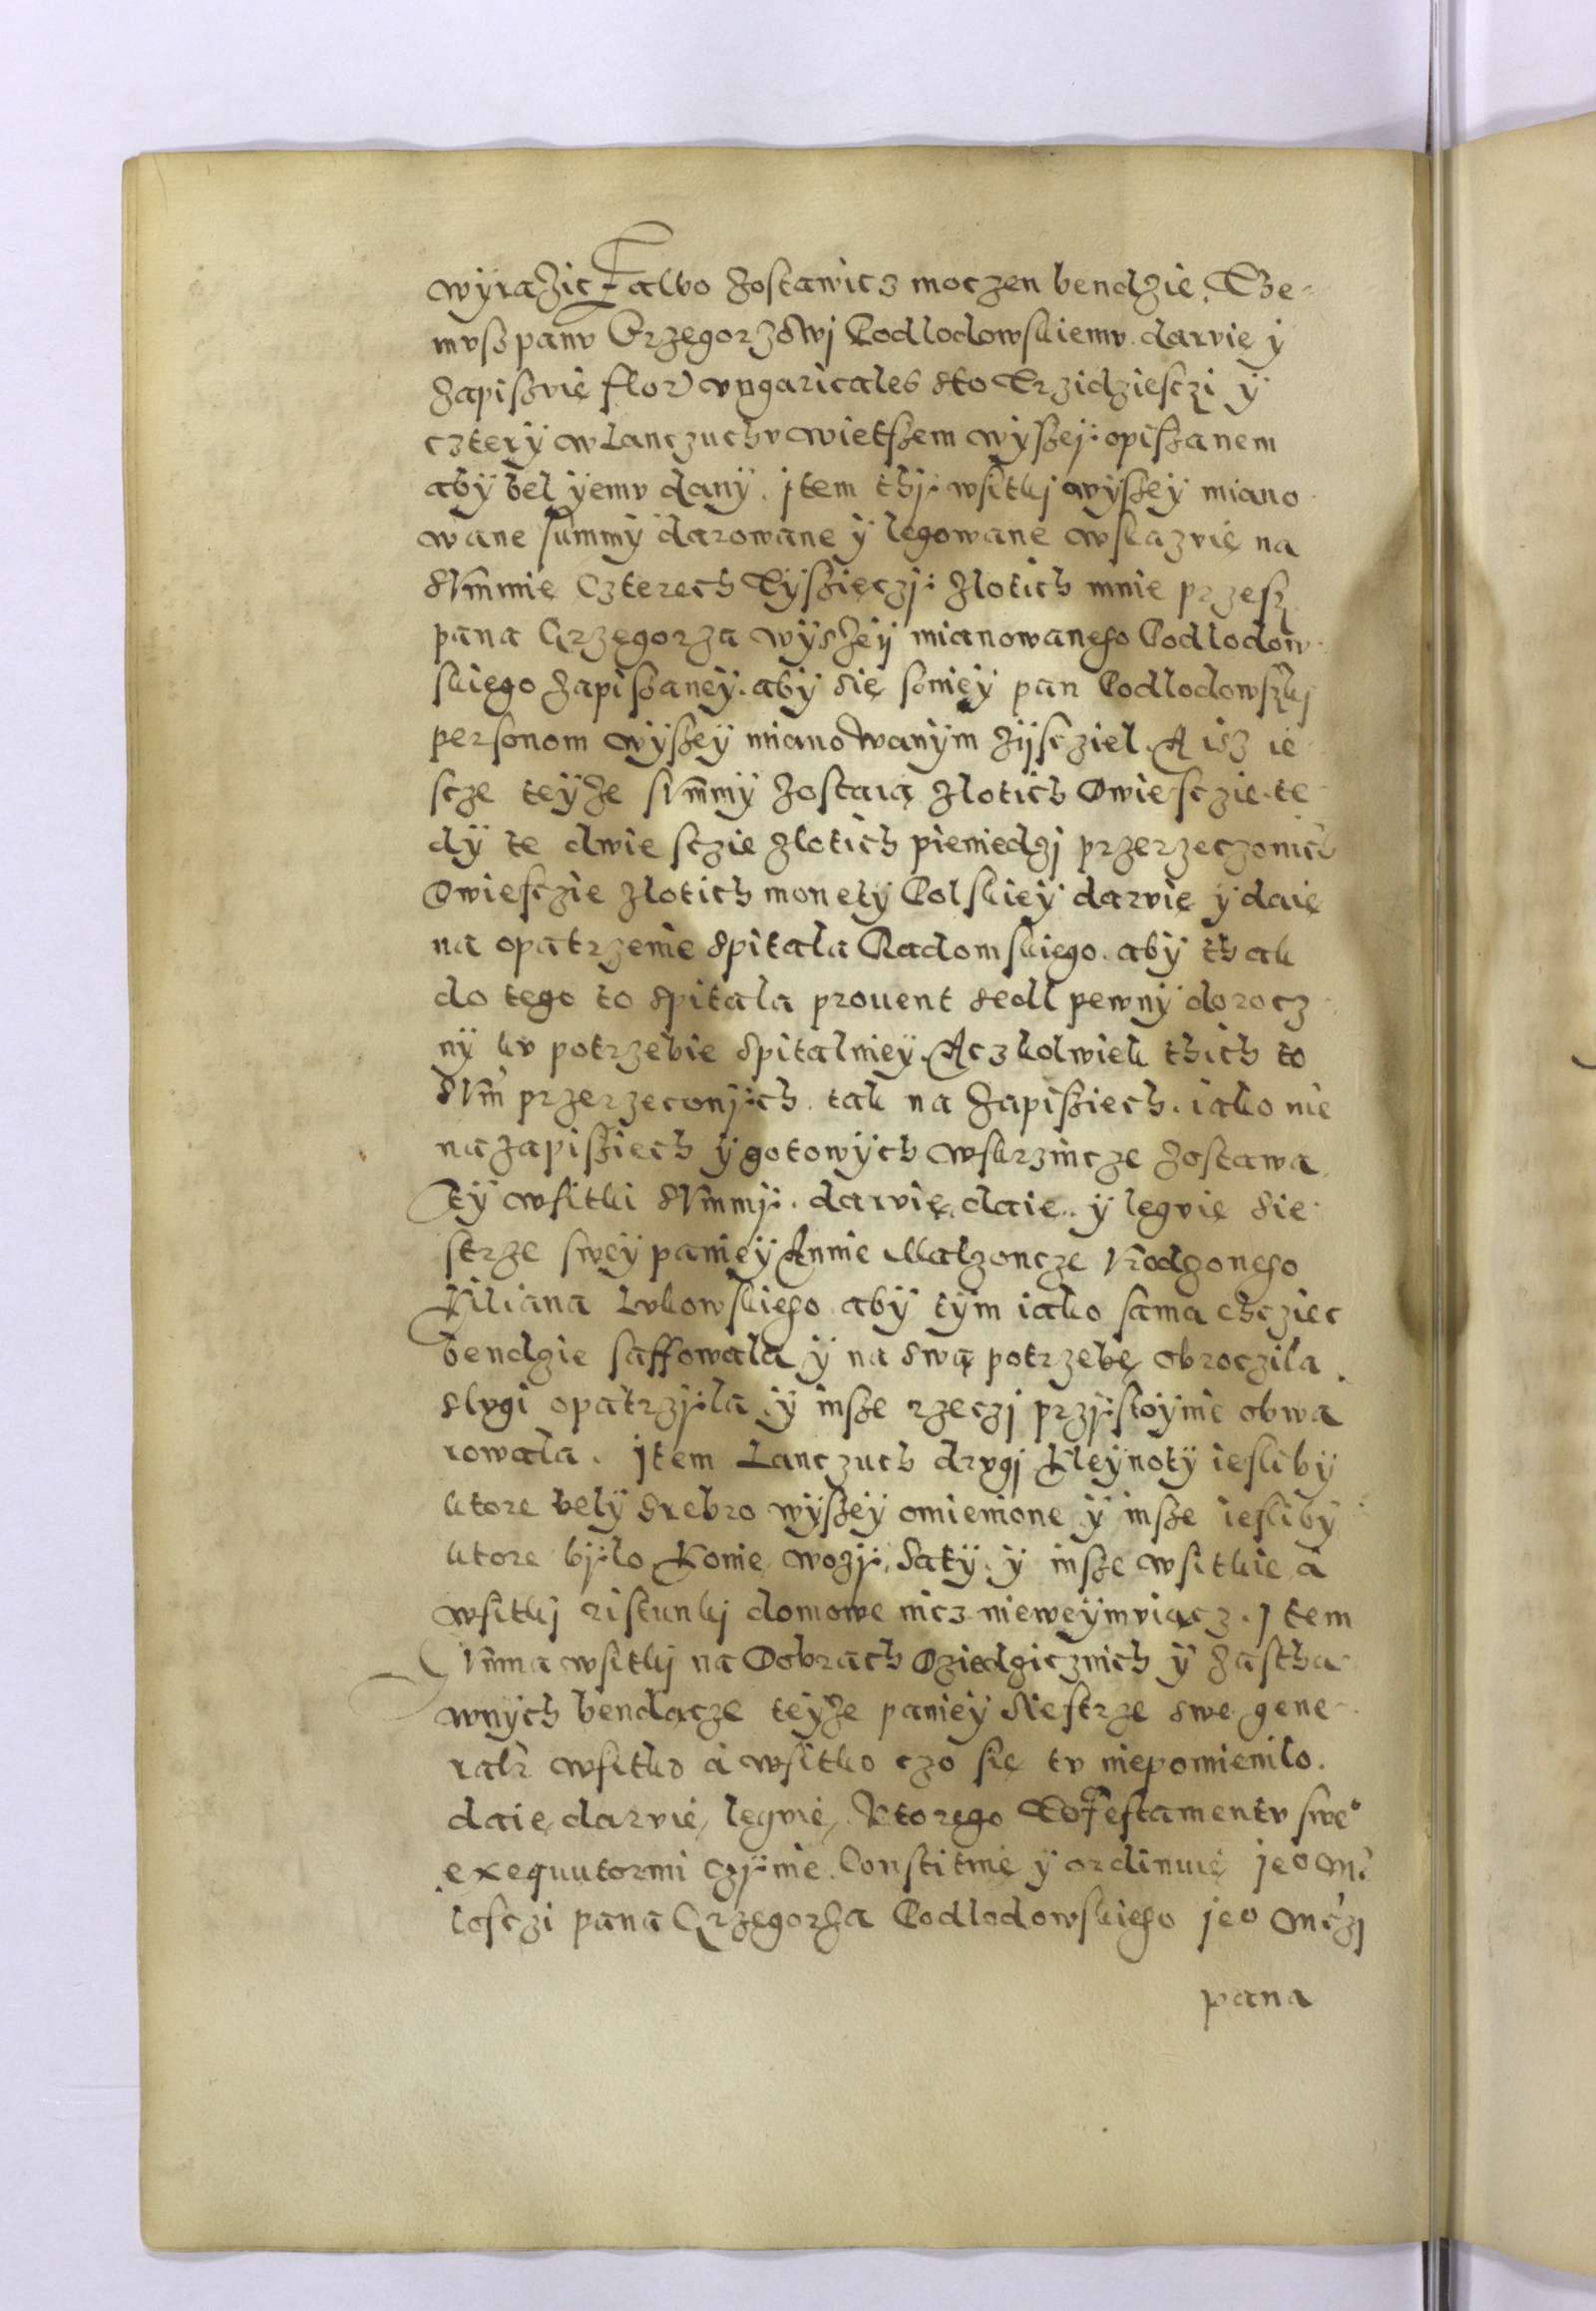 wÿrażic albo żostawicz moczen bendzie. Tże-
mvsz panv Grzegorżowj Podlodowskiemv darvię ÿ
żapiszvię flor vngaricales sto Trzidziesczi ÿ
czterÿ w Lanczuchv wietszem wÿszej opiszanem
abÿ bel ÿemv danÿ. jtem thj wsitkj wÿszeÿ miano
wane summÿ darowane ÿ legowane wskazvię na
sVmmie Czterech Tÿszięczj żlotich mnie przesz
pana Grzegorża wÿsżeÿ mianowanego Podlodow
skiego żapiszaneÿ. abÿ się sznieÿ pan Podlodowszkj
personom wÿszeÿ mianowanÿm żÿscziel. A isz ie
scze teÿże sVmmÿ żostaią żlotich Dwiesczie te
dÿ te dwie sczie żlotich pieniedzj przerzeczonich
Dwiesczie żlotich monetÿ Polskieÿ darvię ÿ daię
na opatrzenie spitala Radomskiego. abÿ thak
do tego to spitala prouent sedl pewnÿ dorocz
nÿ kv potrzebie spitalnieÿ. Aczkolwiek thich to
sVm przerzeconÿch. tak na żapisziech. iako nie
na żapisziech ÿ gotowÿch wskrzincze żostawa
tÿ wsitki sVmmj. darvię, daie. ÿ legvię sie
strże sweÿ panieÿ Annie Malzoncze Vrodzonego
Kiliana Lvkowskiego abÿ tÿm iako sama chcziec
bendzie saffowala ÿ na swą potrzebę obroczila
slvgi opatrzjla ÿ insze rzeczj przjstoÿnie obwa
rowala. jtem Lanczuch drvgj Kleÿnotÿ iesli bÿ
ktore belÿ srebro wÿszeÿ omienione ÿ insze iesli bÿ
ktore bjlo Konie wozj, satÿ ÿ insze wsitkie a
wsitkj ristunkj domowe nicz nieweÿmviącz. Jtem
sVmma wsitkj na Dobrach Dziedzicznich ÿ żastha
wnÿch bendącze teÿże panieÿ siestrże swe gene
rałr wsitko a wsitko czo się tv niepomienilo.
daie, darvię, legvię, Ktorego To Testamentv sweo
exequutormi czjnię. Constitvię ÿ ordinuię jeo Mi
losczi pana Grzegorża Podlodowskiego jeo Mczj
pana